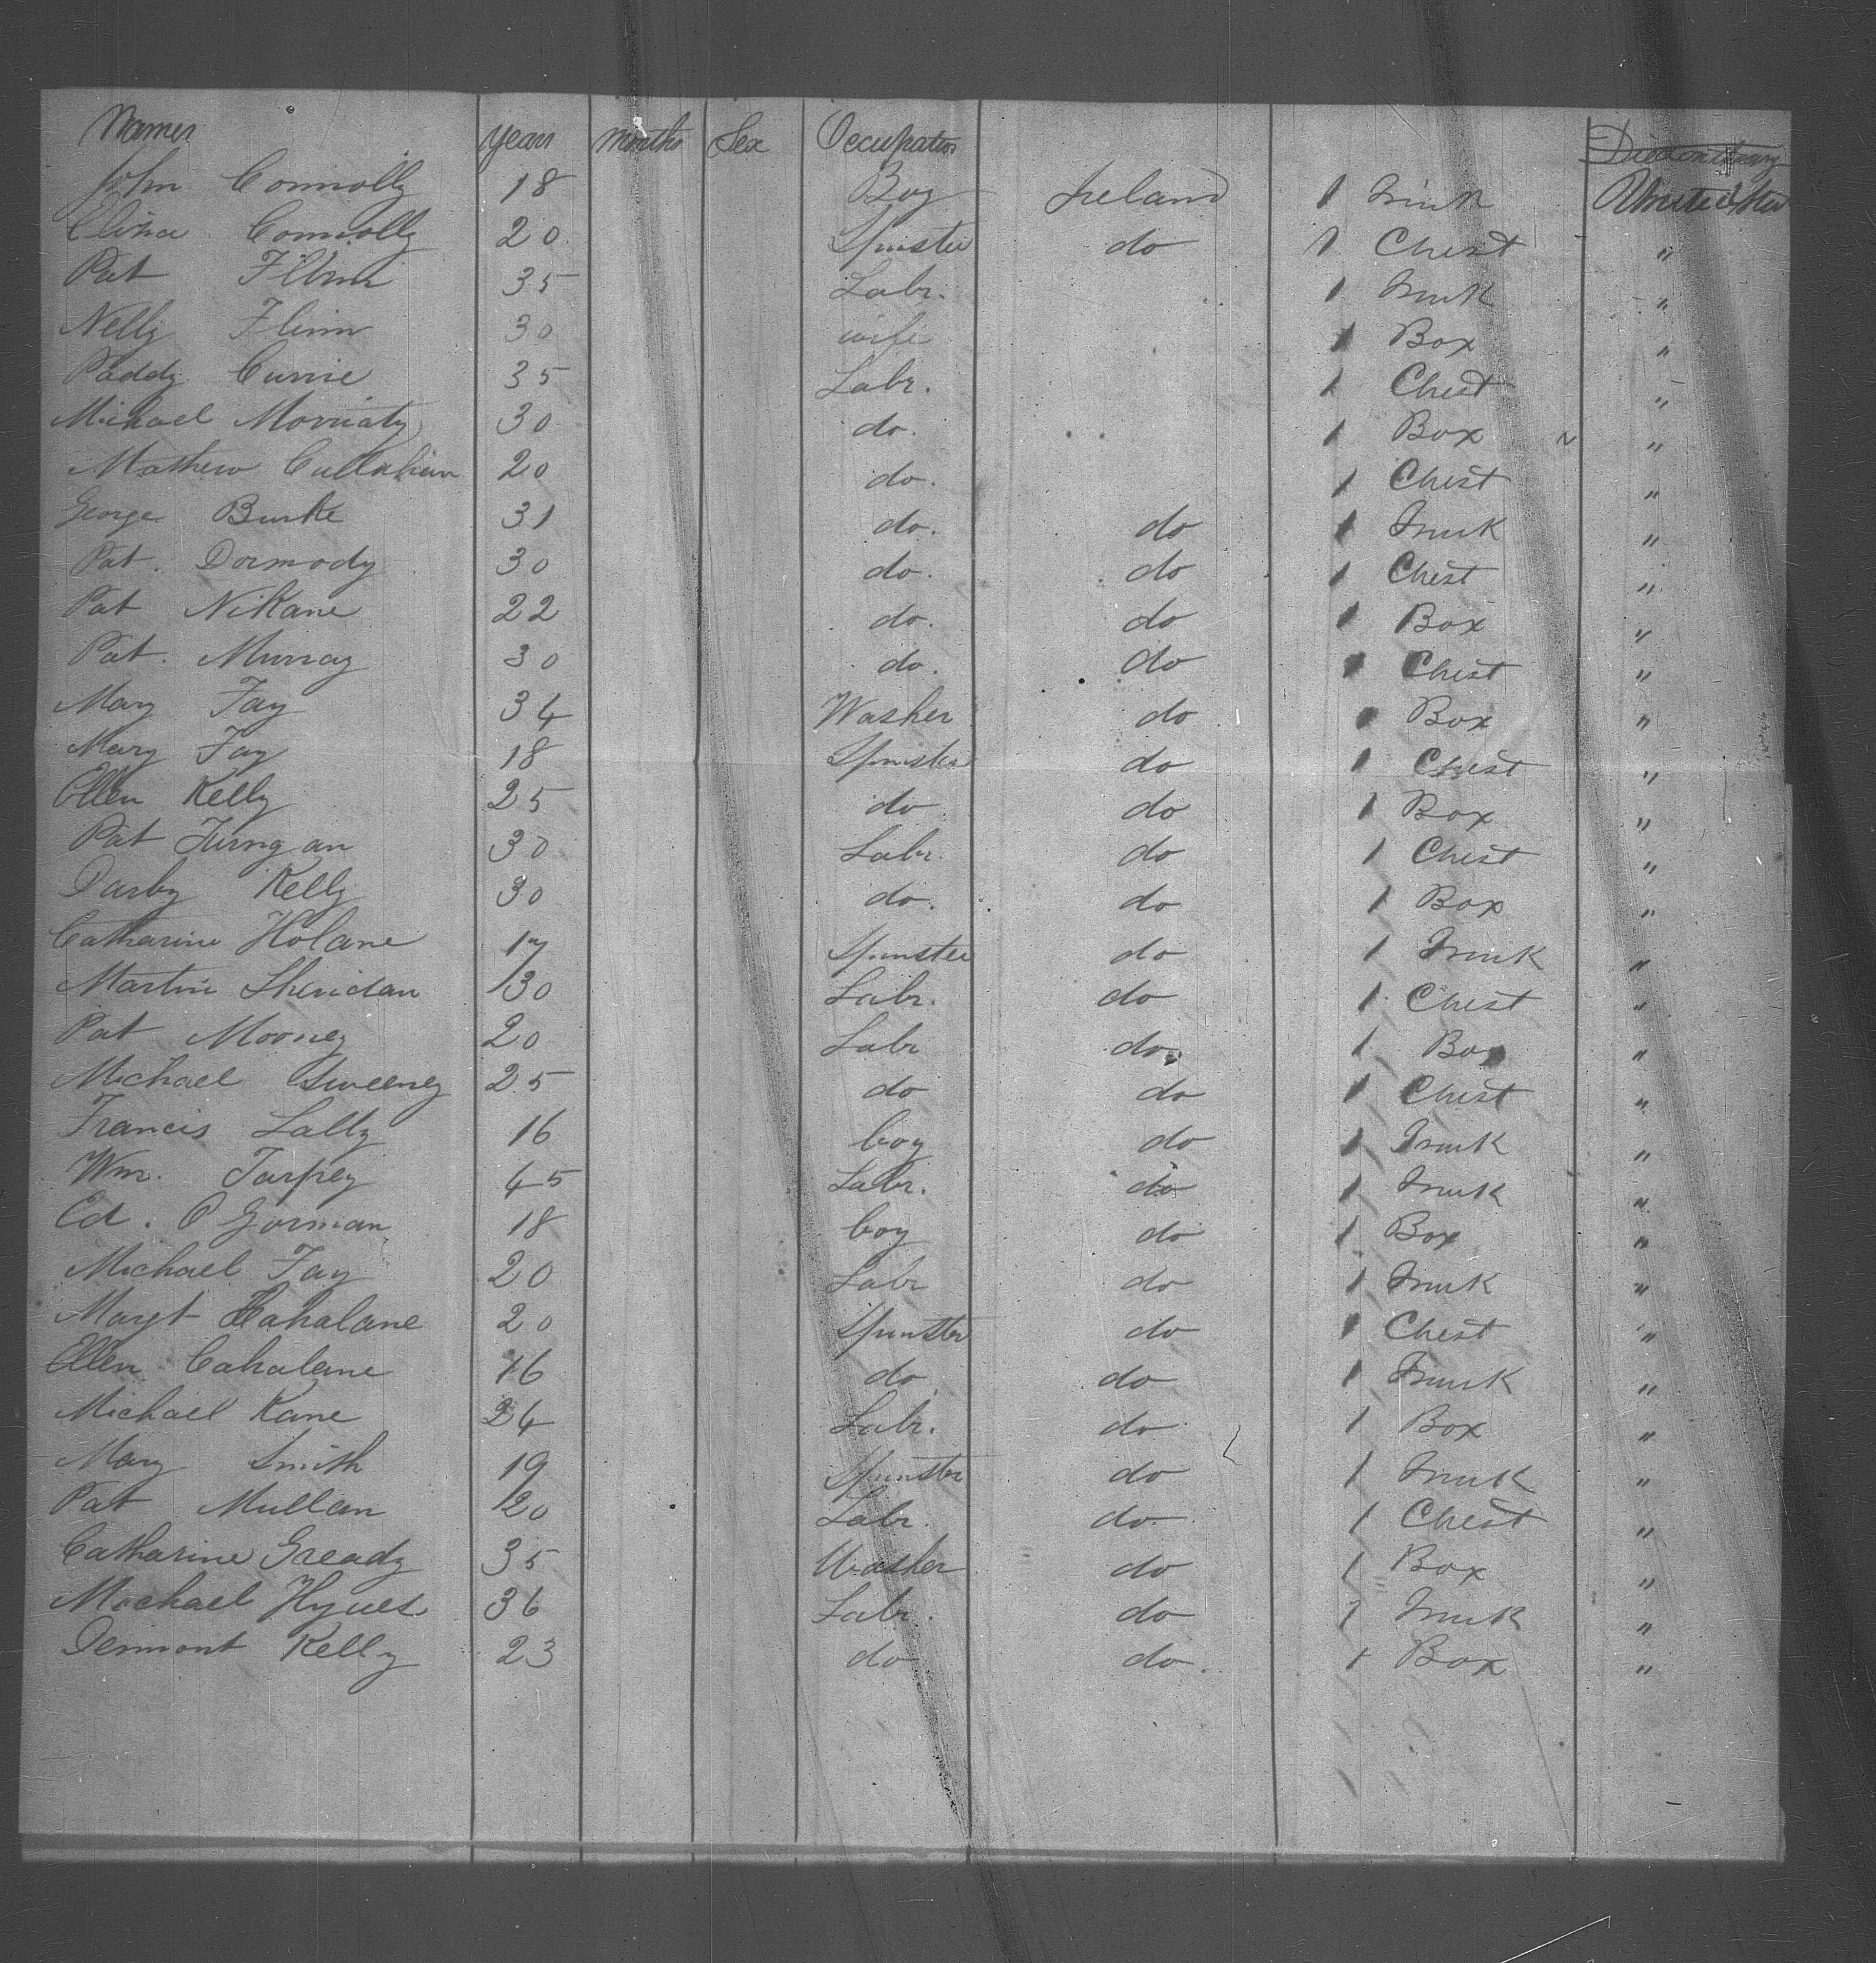 Names Years Months Sex Occupation
John Connolly 18 Boy Ireland 1 Trunk United Stas
Eliza Connolly 20 Spinster do 1 Chest "
Pat Flinn 35 Labr. 1 Trunk "
Nelly Flinn 30 wife 1 Box "
Paddy Currie 35 Labr. 1 Chest "
Michael Morriaty 30 do. 1 Box "
Mathew Cullahan 20 do. 1 Chest "
George Burke 31 do. do 1 Trunk "
Pat. Dormody 30 do. do 1 Chest "
Pat NiKane 22 do. do 1 Box "
Pat. Murray 30 do. do 1 Chest "
Mary Fay 34 Washer do 1 Box "
Mary Fay 18 Spinster do 1 Chest "
Ellen Kelly 25 do do 1 Box "
Pat 30 Labr. do 1 Chest "
Darby Kelly 30 do. do 1 Box "
Catharine Holane 17 Spinster do 1 Trunk "
Martin Sheridan 30 Labr. do 1 Chest "
Pat Mooney 20 Labr do. 1 Box "
Michael Sweeney 25 do do 1 Chest "
Francis Lally 16 boy do 1 Trunk "
Wm. Tarpey 45 Labr. do 1 Trunk "
Ed. O Gorman 18 boy do 1 Box "
Michael Fay 20 Labr do 1 Trunk "
Margt Cahalane 20 Spinster do 1 Chest "
Ellen Cahalane 16 do do 1 Trunk "
Michael Kane 24 Labr. do 1 Box "
Mary Smith 19 Spinster do 1 Trunk "
Pat Mullan 20 Labr. do. 1 Chest "
Catharine Gready 35 Washer do 1 Box "
Michael Hynes 36 Labr. do 1 Trunk "
Dermont Kelly 23 do do. 1 Box "